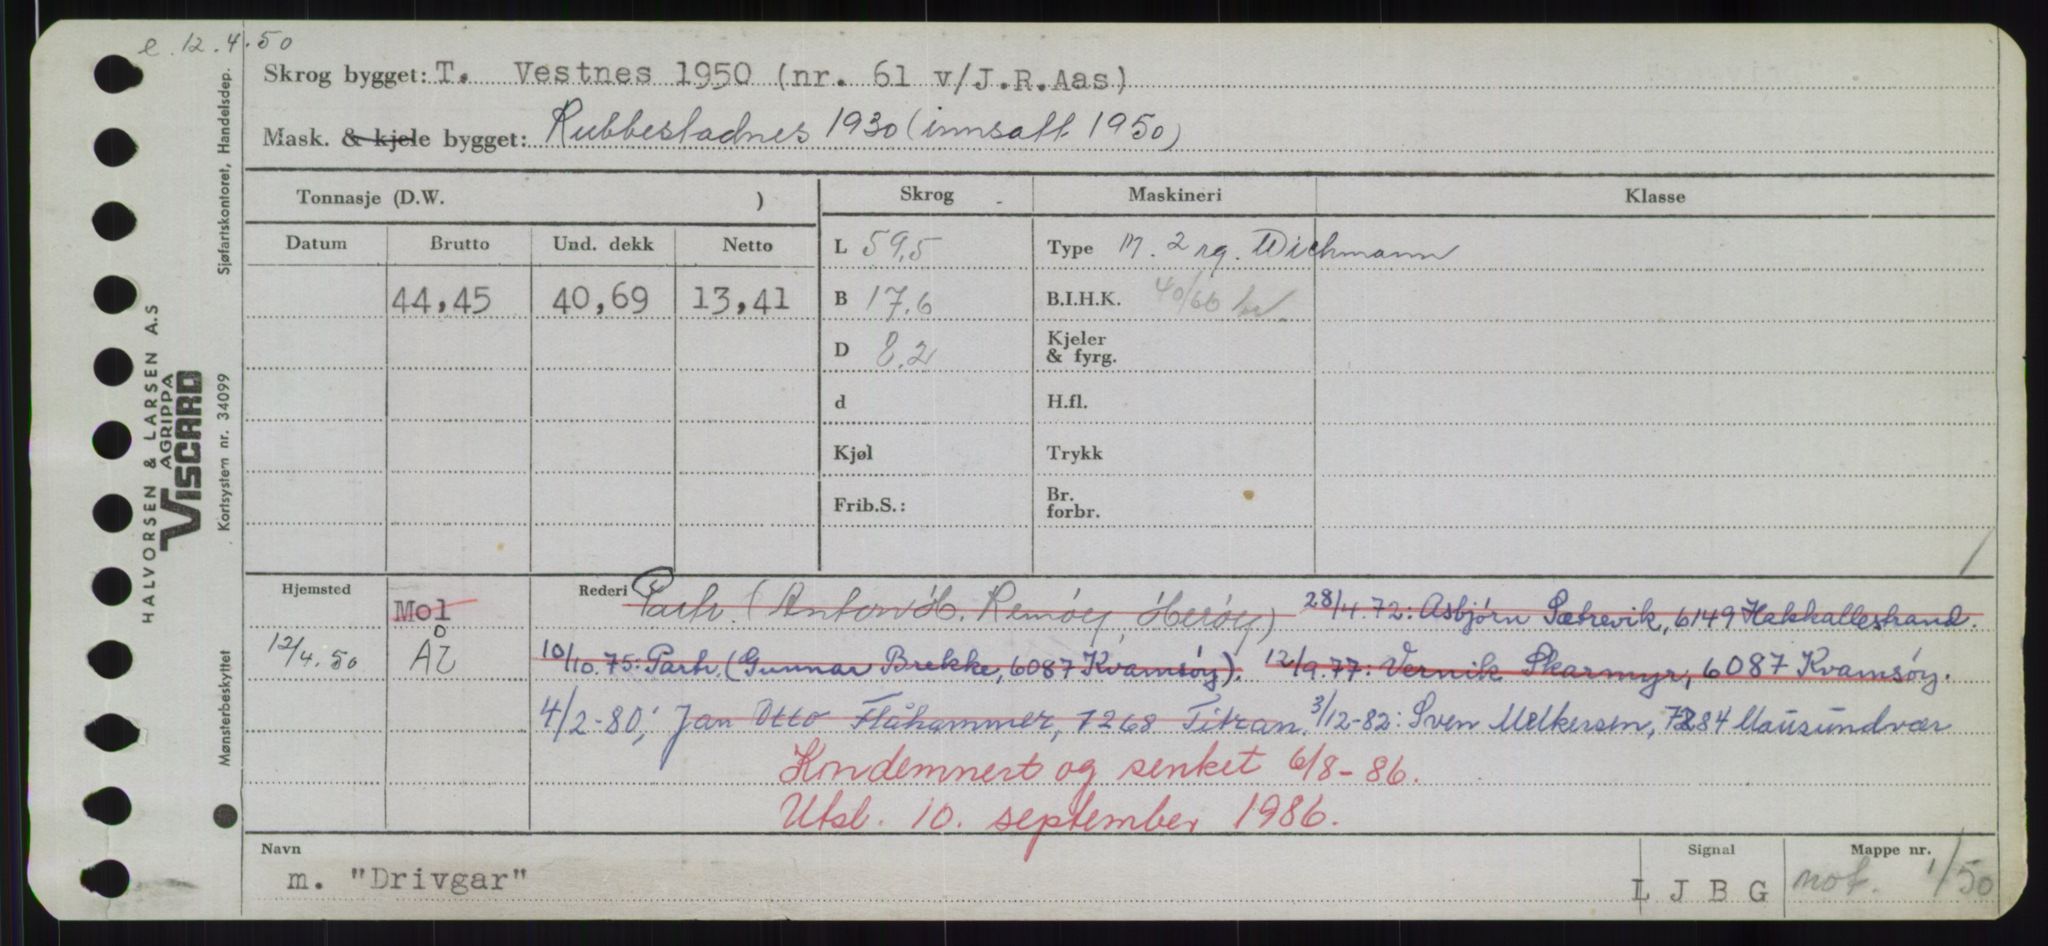 e. 12.4.50
Skrog bygget: T. Vestnes 1950 (nr. 61 v/J.R.Aas)
Mask. & kjele bygget: Rubbestadnes 1930 (innsatt 1950)
Tonnasje (D.W. )
Skrog
Maskineri
Klasse
Datum Brutto Und. dekk Netto
44,45 40,69 13,41
L 59,5
B 17,6
D 8,2
d
Kjøl
Frib.S.:
Type M. 2 rg. Wichmann
B.I.H.K. 40/66 hr.
Kjeler
& fyrg.
H.fl.
Trykk
Br.
forbr.
Hjemsted Mol
12/4.50 Ål
Rederi Partr. (Anton H. Remøy, Herøy) 28/4.72: Asbjørn Sætrevik, 6149 Hakkallestrand.
10/10.75: Partr. (Gunnar Brekke, 6087 Kvamsøy). 12/9.77: Vernik Skarmyr, 6087 Kvamsøy.
4/2-80; Jan Otto Flåhammer, 7268 Titran. 3/12-82: Sven Melkersen, 7284 Mausundvær
Kondemnert og senket 6/8-86.
Utsl. 10. september 1986.
Navn
m. "Drivgar"
Signal
L J B G
Mappe nr.
not. 1/50
HALVORSEN & LARSEN A.S
AGRIPPA
VISCARD
Mønsterbeskyttet Kortsystem nr. 34099 Sjøfartskontoret, Handelsdep.